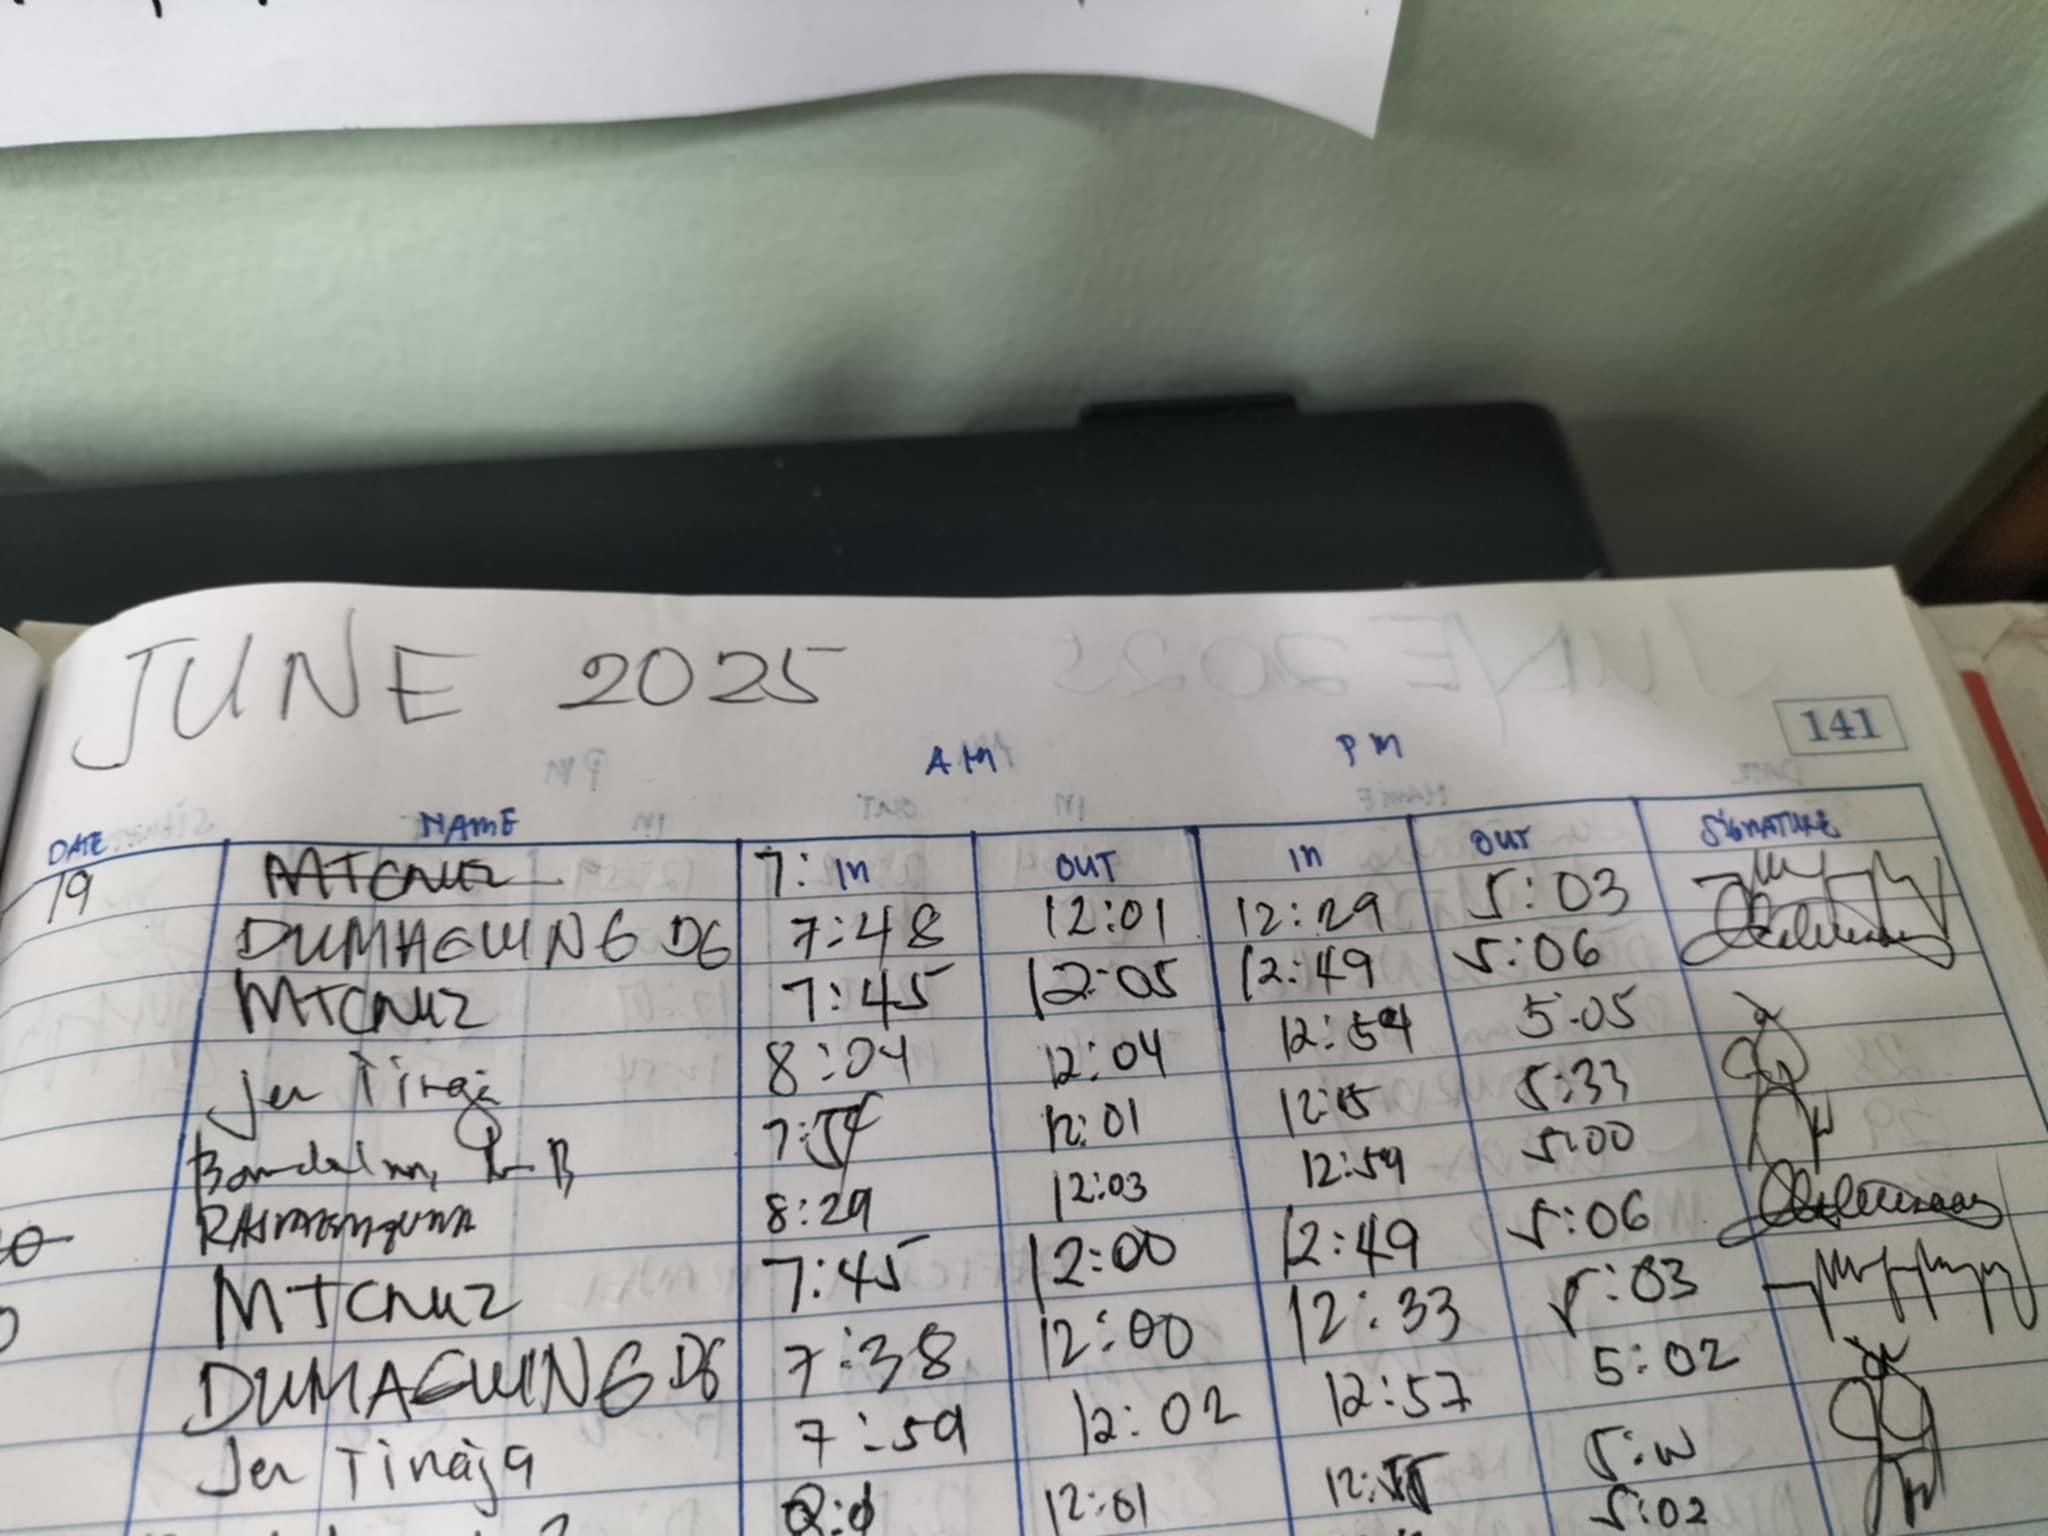 JUNE 2025
141
AM PM
DATE NAME IN OUT IN OUT SIGNATURE
19 MTCRUZ 7:
DUMAGUING DG 7:48 12:01 12:29 5:03
MTCRUZ 7:45 12:05 12:49 5:06
Jer Tinaja 8:04 12:04 12:54 5:05
7:54 12:01 5:33
8:29 12:03 12:59 5:00
MTCRUZ 7:45 12:00 12:49 5:06
DUMAGUING DG 7:38 12:00 12:33 5:03
Jer Tinaja 7:59 12:02 12:57 5:02
12:01
5:02